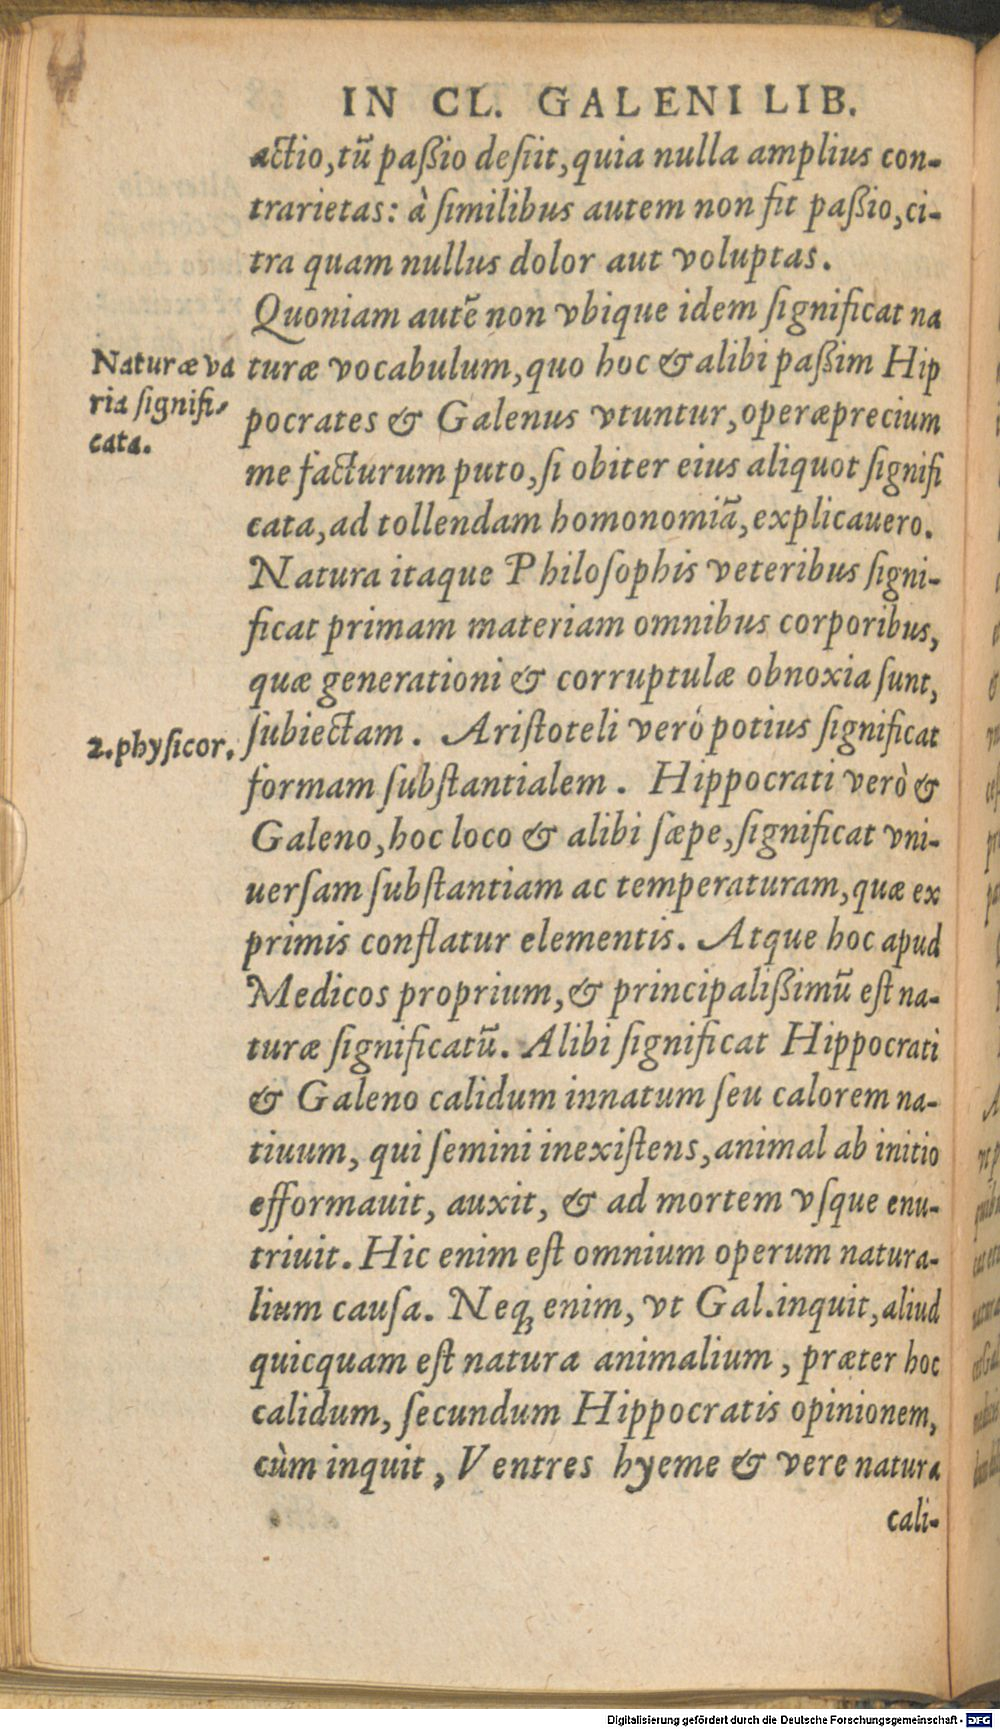 IN CL. GALENI LIB.
actio, tũ paßio desiit, quia nulla amplius con-
trarietas: à similibus autem non fit paßio, ci-
tra quam nullus dolor aut voluptas.
Quoniam autẽ non vbique idem significat na
Naturæ va
turæ vocabulum, quo hoc & alibi paßim Hip
ria signifi-
pocrates & Galenus vtuntur, operæprecium
cata.
me facturum puto, si obiter eius aliquot signifi
cata, ad tollendam homonomiã, explicauero.
Natura itaque Philosophis veteribus signi-
ficat primam materiam omnibus corporibus,
quæ generationi & corruptulæ obnoxia sunt,
2. physicor.
subiectam. Aristoteli verò potius significat
formam substantialem. Hippocrati verò &
Galeno, hoc loco & alibi sæpe, significat vni-
uersam substantiam ac temperaturam, quæ ex
primis conflatur elementis. Atque hoc apud
Medicos proprium, & principalißimũ est na-
turæ significatũ. Alibi significat Hippocrati
& Galeno calidum innatum seu calorem na-
tiuum, qui semini inexistens, animal ab initio
efformauit, auxit, & ad mortem vsque enu-
triuit. Hic enim est omnium operum natura-
lium causa. Neq; enim, vt Gal. inquit, aliud
quicquam est natura animalium, præter hoc
calidum, secundum Hippocratis opinionem,
cùm inquit, Ventres hyeme & vere natura
cali-
Digitalisierung gefördert durch die Deutsche Forschungsgemeinschaft - DFG